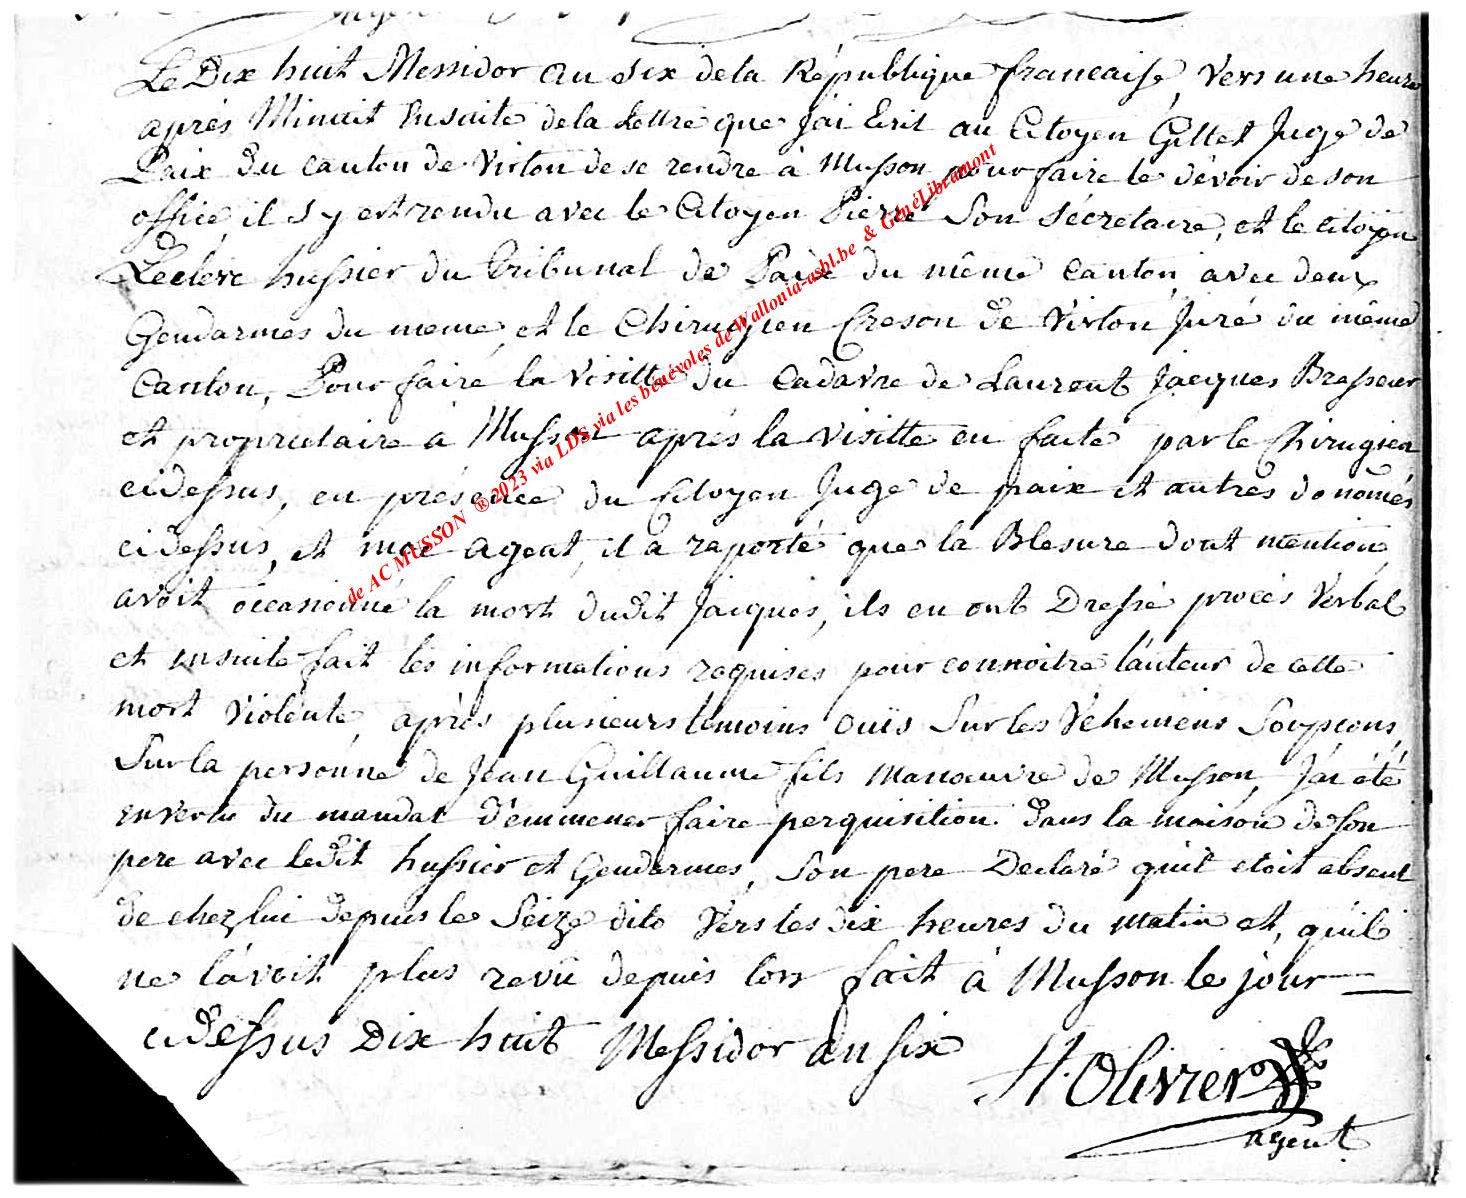 agent
Le Dix huit Messidor an six de la République francaise, vers une heure
aprés Minuit Ensuite de la Lettre que J'ai Ecrit au Citoyen Gillet Juge de
Paix du canton de Virton de se rendre à Musson pour faire le dévoir de son
office, il s'y est rendu avec le Citoyen Pierre Son Sécretaire, et le citoyen
Leclere hussier du Tribunal de Paix du même Canton, avec deux
Gendarmes du meme, et le Chirugien Creson de Virton Juré du même
Canton, Pour faire la visitte du Cadavre de Laurent Jacques Brasseur
et propriétaire à Musson aprés la visitte en faite par le Chirugien
cidessus, en présence du Citoyen Juge de paix et autres donomés
cidessus, et moi agent, il a raporté que la Blesure dont mention,
avoit occasionné la mort dudit Jacques, ils en ont Dressé procés Verbal
et ensuite fait les informations requises pour connoitre l'auteur de cette
mort violente, aprés plusieurs témoins ouïs Sur les Véhemens Soupcons,
Sur la personne de Jean Guillaume fils manœuvre de Musson, J'ai été
en vertu du mandat d'emmener faire perquisition dans la maison de son
pere avec ledit hussier et Gendarmes, Son pere Declaré qu'il etoit absent
de chez lui depuis le Seize dito Vers les dix heures du matin et, qu'il
ne l'avoit plus revû depuis lors fait à Musson le jour
cidessus Dix huit Messidor an six
H. Olivier
agent
de AC MUSSON ® 2023 via LDS via les bénévoles de Wallonia-asbl.be & GénéLibramont